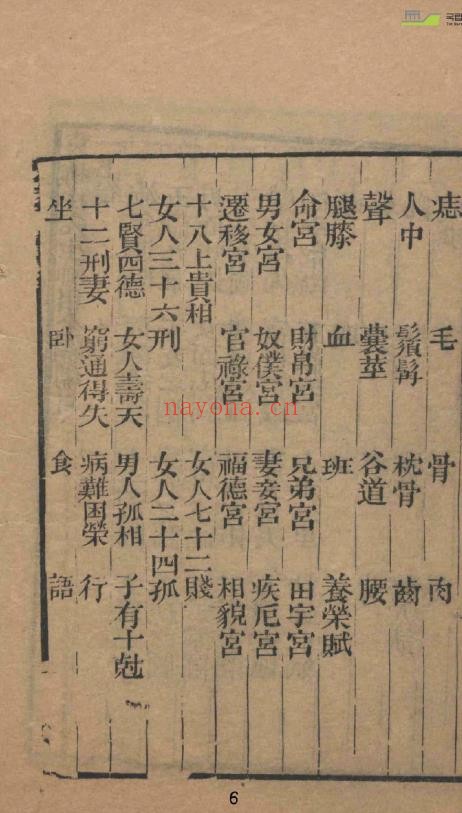 痣 毛 骨 肉
人中 鬚髯 枕骨 齒
聲 囊莖 谷道 腰
腿膝 血 班 養榮賦
命宮 財帛宮 兄弟宮 田宇宮
男女宮 奴僕宮 妻妾宮 疾厄宮
遷移宮 官祿宮 福德宮 相貌宮
十八上貴相 女人七十二賤
女人三十六刑 女人二十四孤
七賢四德 女人壽夭 男人孤相 子有十尅
十二刑妻 窮通得失 病難困榮 行
坐 卧 食 語
nayona.cn
6